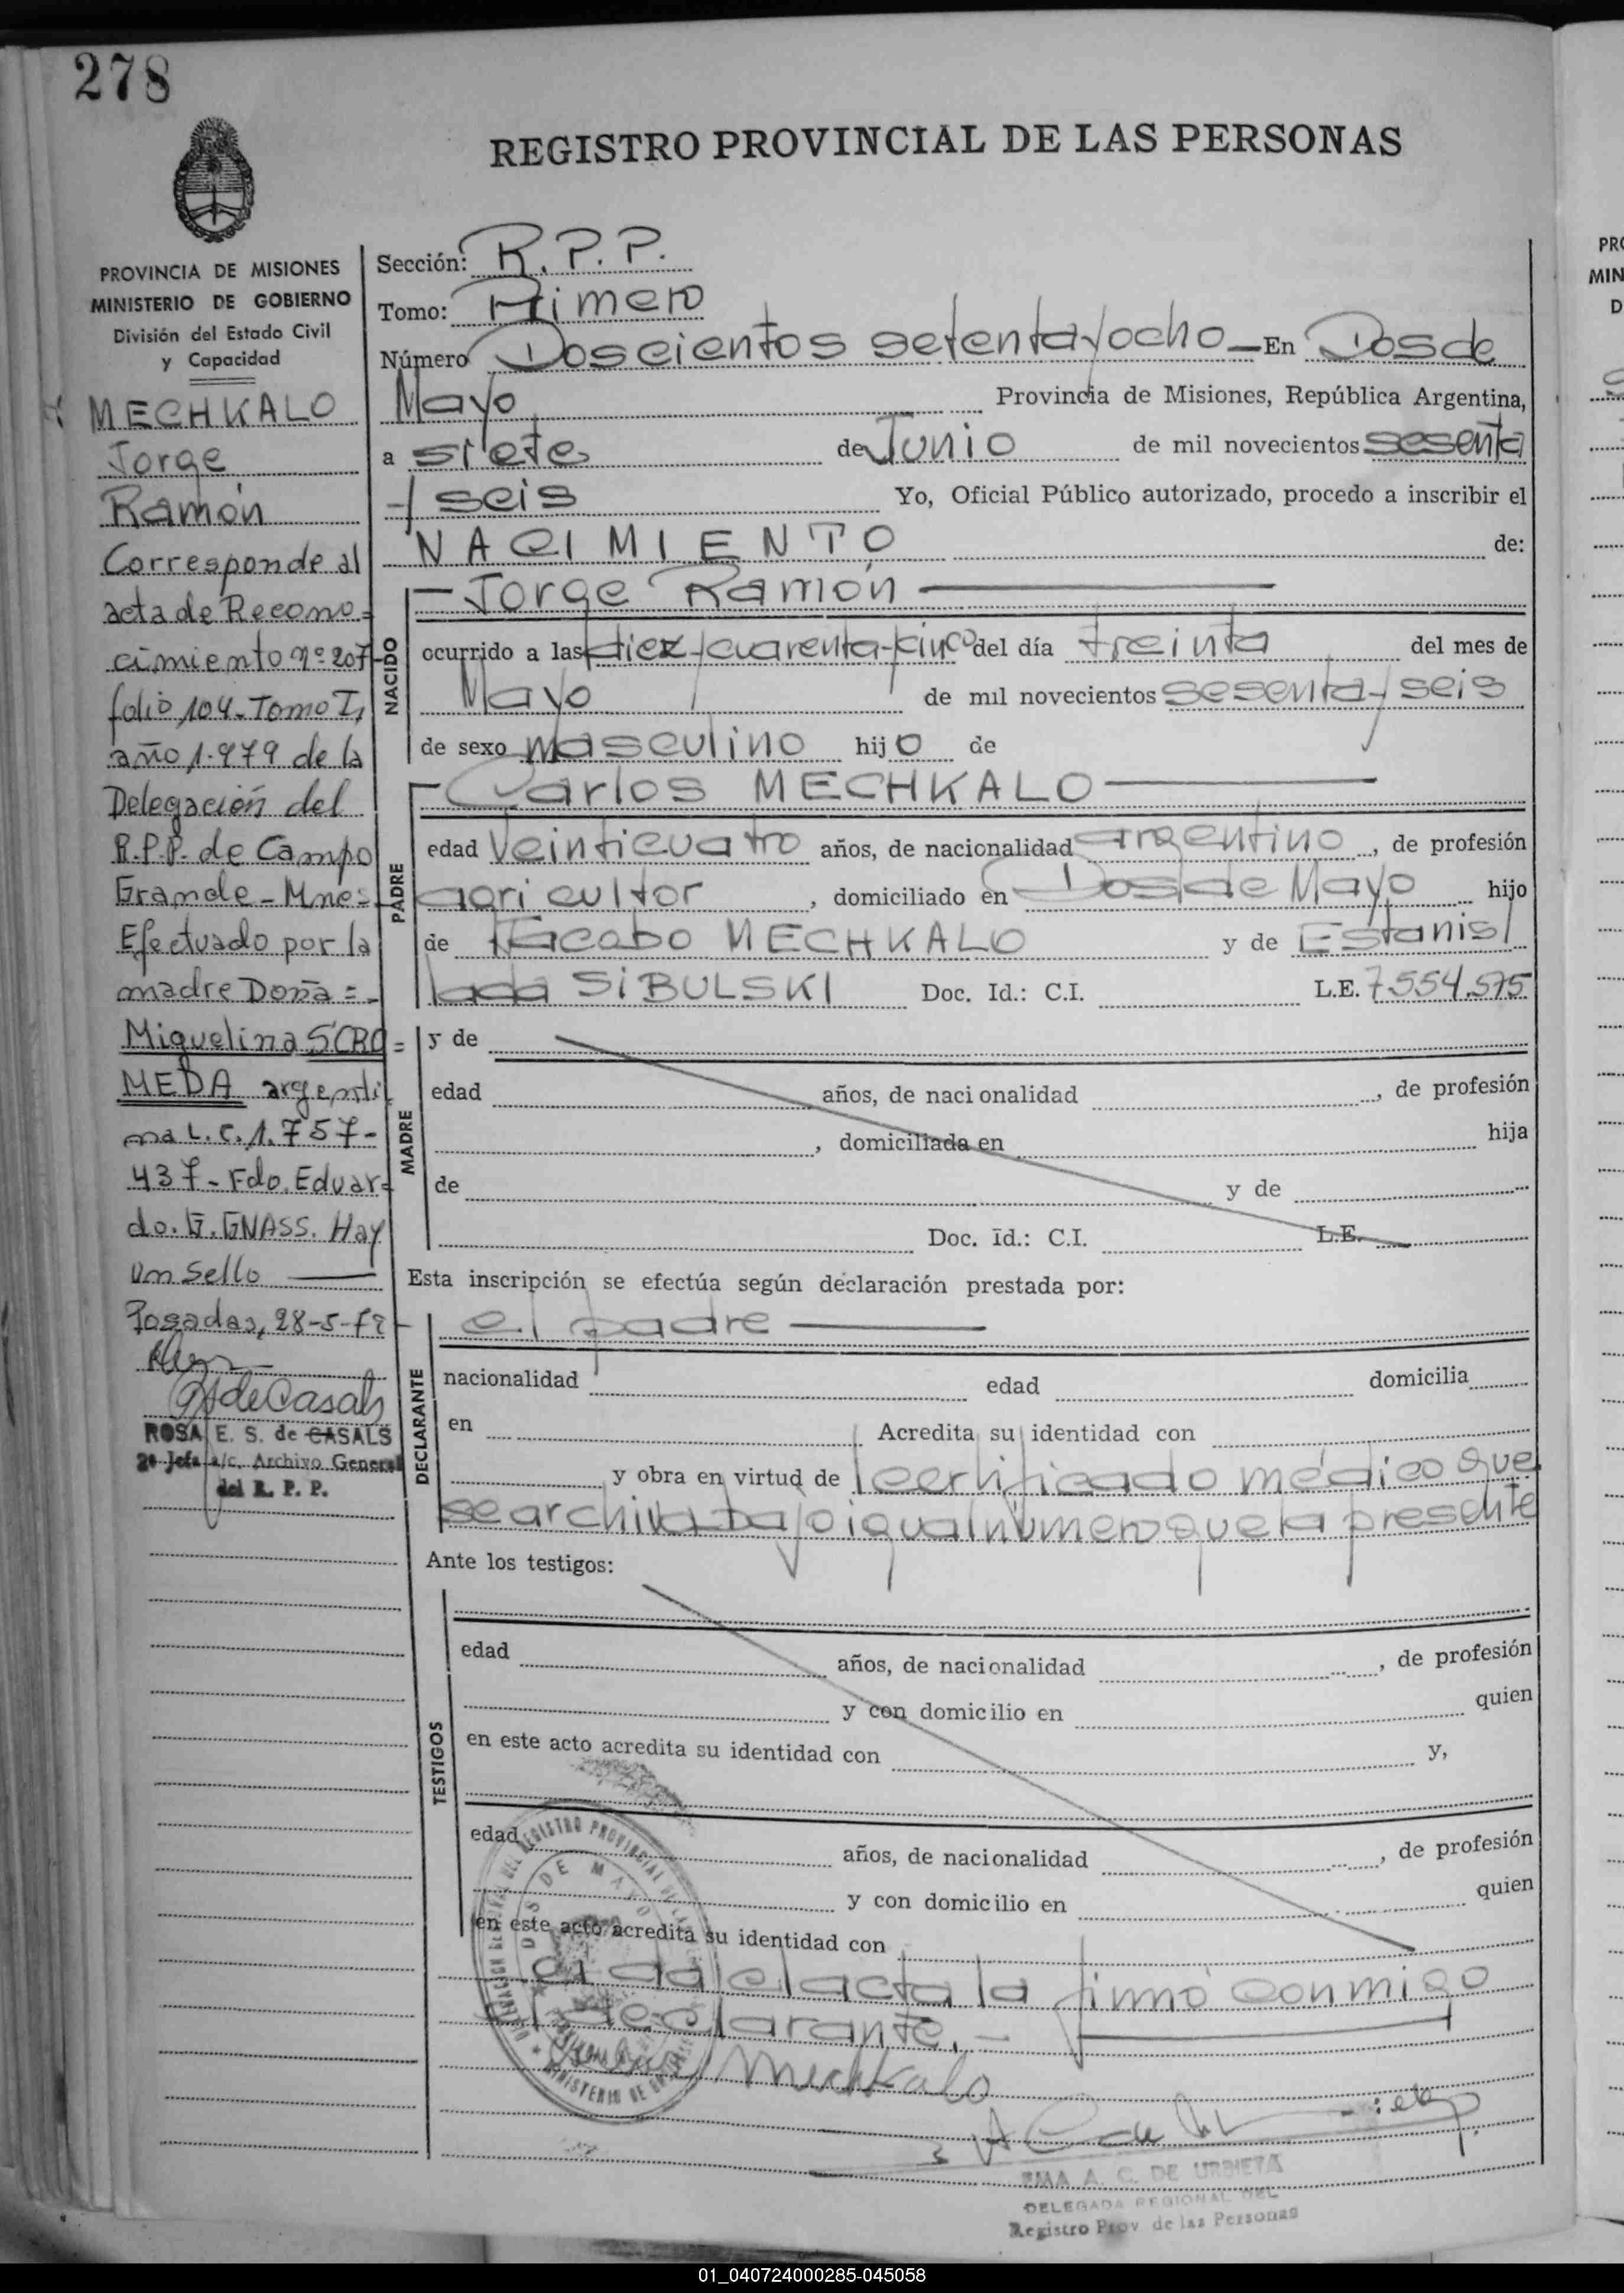 278
REGISTRO PROVINCIAL DE LAS PERSONAS
PROVINCIA DE MISIONES
MINISTERIO DE GOBIERNO
División del Estado Civil
y Capacidad
MECHKALO
Jorge
Ramón
Corresponde al
acta de Recono=
cimiento nº 207
folio 104-Tomo I,
año 1.979 de la
Delegación del
R.P.P. de Campo
Grande - Mnes
Efectuado por la
madre Doña =
Miguelina SCRO=
MEDA argenti
na L.C. 1.757-
437 - Fdo. Eduar=
do. G. GNASS. Hay
un sello
Posadas, 28-5-
ROSA E. S. de CASALS
2ª Jefa a/c. Archivo General
del R. P. P.
Sección: R.P.P.
Tomo: Primero
Número Doscientos setenta y ocho — En Dos de
Mayo Provincia de Misiones, República Argentina,
a siete de Junio de mil novecientos sesenta
y seis Yo, Oficial Público autorizado, procedo a inscribir el
NACIMIENTO de:
NACIDO
— Jorge Ramón —
ocurrido a las diez y cuarenta y cinco del día treinta del mes de
Mayo de mil novecientos sesenta y seis
de sexo masculino hijo de
PADRE
Carlos MECHKALO —
edad Veinticuatro años, de nacionalidad argentino, de profesión
agricultor, domiciliado en Dos de Mayo hijo
de Jacobo MECHKALO y de Estanis
lada SIBULSKI Doc. Id.: C.I. L.E. 7.554.575
MADRE
y de
edad años, de nacionalidad , de profesión
, domiciliada en hija
de y de
Doc. id.: C.I. L.E.
Esta inscripción se efectúa según declaración prestada por:
DECLARANTE
el padre —
nacionalidad edad domicilia
en Acredita su identidad con
y obra en virtud de certificado médico que
se archiva bajo igual número que la presente
Ante los testigos:
TESTIGOS
edad años, de nacionalidad , de profesión
y con domicilio en quien
en este acto acredita su identidad con y,
edad años, de nacionalidad , de profesión
y con domicilio en quien
en este acto acredita su identidad con
el acta la firmó conmigo
el declarante. —
Mechkalo
EMA A. C. DE URBIETA
DELEGADA REGIONAL DEL
Registro Prov de las Personas
DOS DE MAYO
01_040724000285-045058